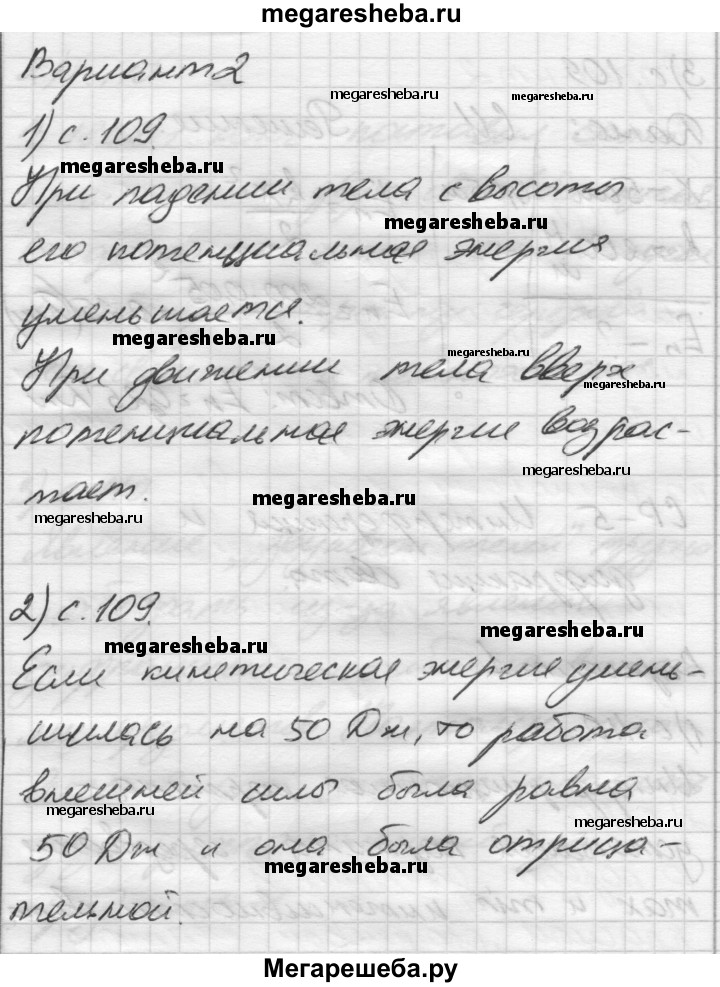 megaresheba.ru
Вариант 2
megaresheba.ru
megaresheba.ru
1) с. 109.
megaresheba.ru
При падении тела с высоты
megaresheba.ru
его потенциальная энергия
уменьшается.
megaresheba.ru
megaresheba.ru
При движении тела вверх
megaresheba.ru
потенциальная энергия возрас-
megaresheba.ru
тает.
megaresheba.ru
megaresheba.ru
2) с. 109.
megaresheba.ru
megaresheba.ru
Если кинетическая энергия умень-
шилась на 50 Дж, то работа
внешней силы была равна
megaresheba.ru
megaresheba.ru
50 Дж и она была отрица-
megaresheba.ru
тельной.
Мегарешеба.ру